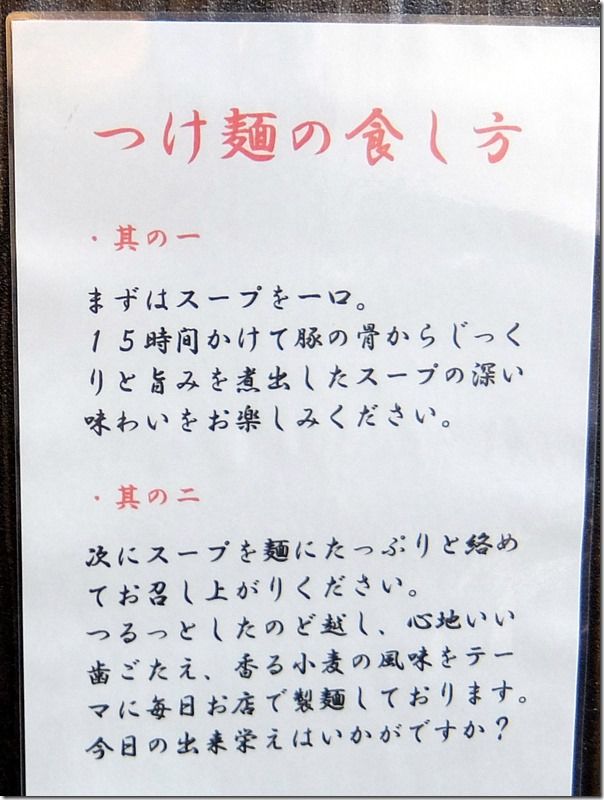 つけ麺の食し方
・其の一
まずはスープを一口。
１５時間かけて豚の骨からじっく
りと旨みを煮出したスープの深い
味わいをお楽しみください。
・其の二
次にスープを麺にたっぷりと絡め
てお召し上がりください。
つるっとしたのど越し、心地いい
歯ごたえ、香る小麦の風味をテー
マに毎日お店で製麺しております。
今日の出来栄えはいかがですか？